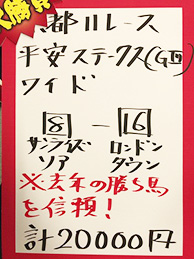 都11レース
平安ステークス(GⅢ)
ワイド
8 - 16
サンライズ ロンドン
ソア タウン
※去年の勝ち馬
を信頼!
計20000円